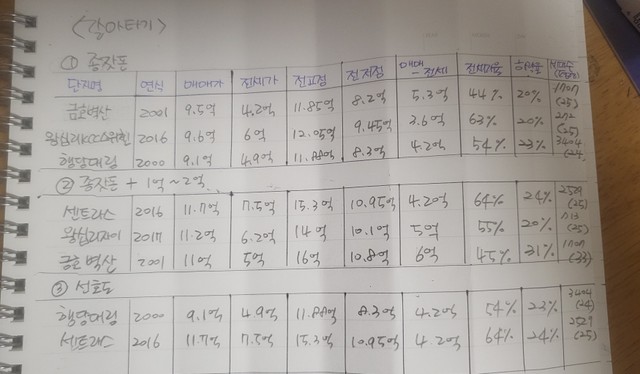 <갈아타기>
① 종잣돈
단지명 연식 매매가 전세가 전고점 전저점 매매-전세 전세가율 하락율 세대수(평형)
금호벽산 2001 9.5억 4.2억 11.85억 8.2억 5.3억 44% 20% 1707 (25)
왕십리KCC스위첸 2016 9.6억 6억 12.05억 9.45억 3.6억 63% 20% 272 (25)
행당대림 2000 9.1억 4.9억 11.88억 8.3억 4.2억 54% 23% 3404 (24)
② 종잣돈 + 1억~2억
센트라스 2016 11.7억 7.5억 15.3억 10.95억 4.20억 64% 24% 2529 (25)
왕십리자이 2017 11.2억 6.2억 14억 10.1억 5억 55% 20% 713 (25)
금호 벽산 2001 11억 5억 16억 10.8억 6억 45% 31% 1707 (33)
③ 선호도
행당대림 2000 9.1억 4.9억 11.88억 8.3억 4.2억 54% 23% 3404 (24)
센트라스 2016 11.7억 7.5억 15.3억 10.95억 4.2억 64% 24% 2529 (25)